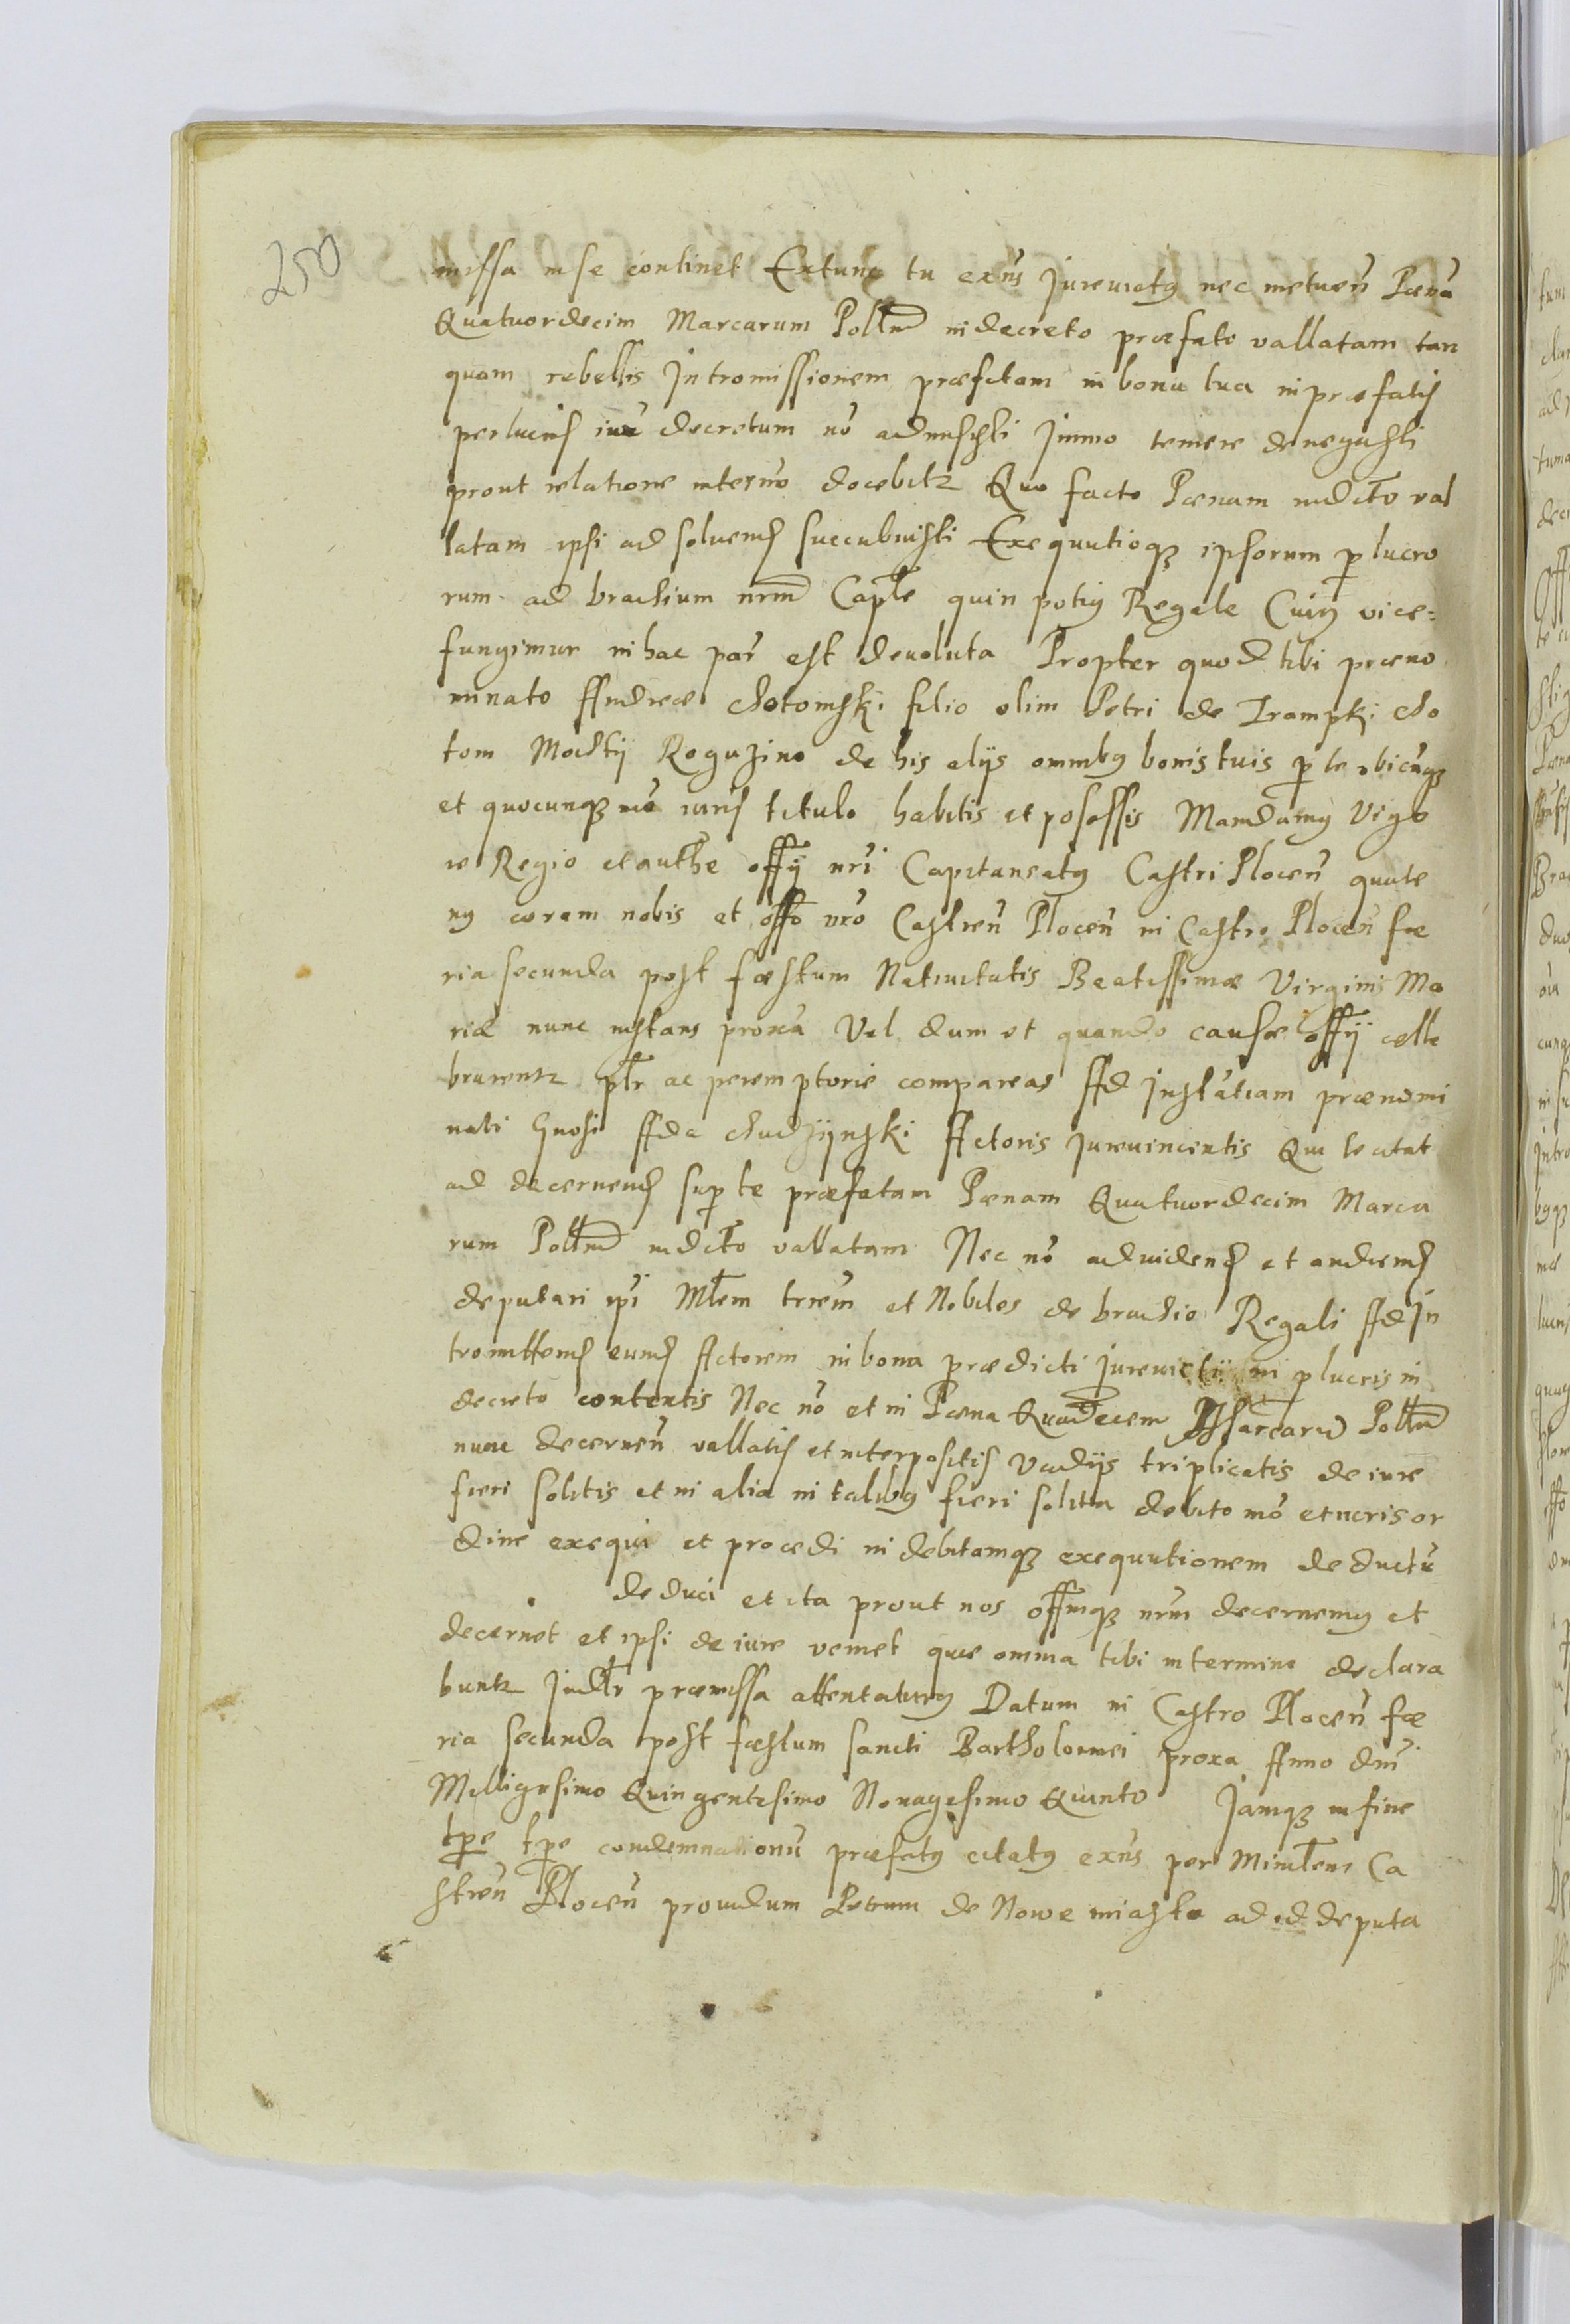 250
missa in se continet Extunc tu exñs Jurevictus nec metueñ Pœna
Quatuordecim Marcarum Polłm in decreto præfato vallatam tan
quam rebellis Intromissionem præfatam in bona tua in præfatis
perlucris decretum nõ admisisti Jmmo temere denegasti
prout relatione intermõ docebitr Quo facto Pœnam indcto val
latam ipsi ad soluend succubuisti Exequutioq3 ipsorum p lucro
rum ad brachium nrm Caple quin potius Regale Cuius vice=
fungimur in hac par est deuoluta Propter quod tibi præno
minato Andreæ Chotomski filio olim Petri de Trompki Cho
tom Mochty Roguzino de his alijs omnibus bonis tuis p te vbicũq3
et quocunq3 mõ iuris titulo habitis et posessis Mandamus Vigo
re Regio et authe offij nri Capitaneatus Castri Ploceñ quate
nus coram nobis et offo nro Castreñ Ploceñ in Castro Ploceñ fæ
ria secunda post fæstum Natiuitatis Beatissimæ Virginis Ma
riæ nunc instans proxa Vel dum et quando causæ offij celle
brarentr płr ac peremptorie compareas Ad Instãtiam prænomi
nati Gnosi Adæ Chudzijnski Actoris Jurevincentis Qui te citat
ad decernend sup te præfatam Pœnam Quatuordecim Marca
rum Polłm indcto vallatam Nec nõ ad uidend et audiend
deputari ipi Młem trrem et Nobiles de brachio Regali Ad In
tromittend eund Actorem in bona prædicti Jurevicti in p lucris in
decreto contentis Nec nõ et in Pœna Quadecem Marcarũ Polłm
nunc decerneñ vallatis et interpositis Vadijs triplicatis de iure
fieri solitis et in alia in talibus fieri solita debito mõ et iuris or
dine exequi et procedi in debitamq3 exequutionem deductũ
deduci et ita prout nos offmq3 nrm decernemus et
decernet et ipsi de iure veniet quæ omnia tibi in termino declara
buntr Judłr præmissa attentaturus Datum in Castro Ploceñ fæ
ria secunda post fæstum sancti Bartholomei proxa Anno dni
Milligesimo Quingentesimo Nonagesimo Quinto Jamq3 in fine
tpre tpre condemnationũ præfatus citatus exñs per Ministem Ca
streñ Ploceñ prouidum Petrum de Nowe miasto ad id deputa